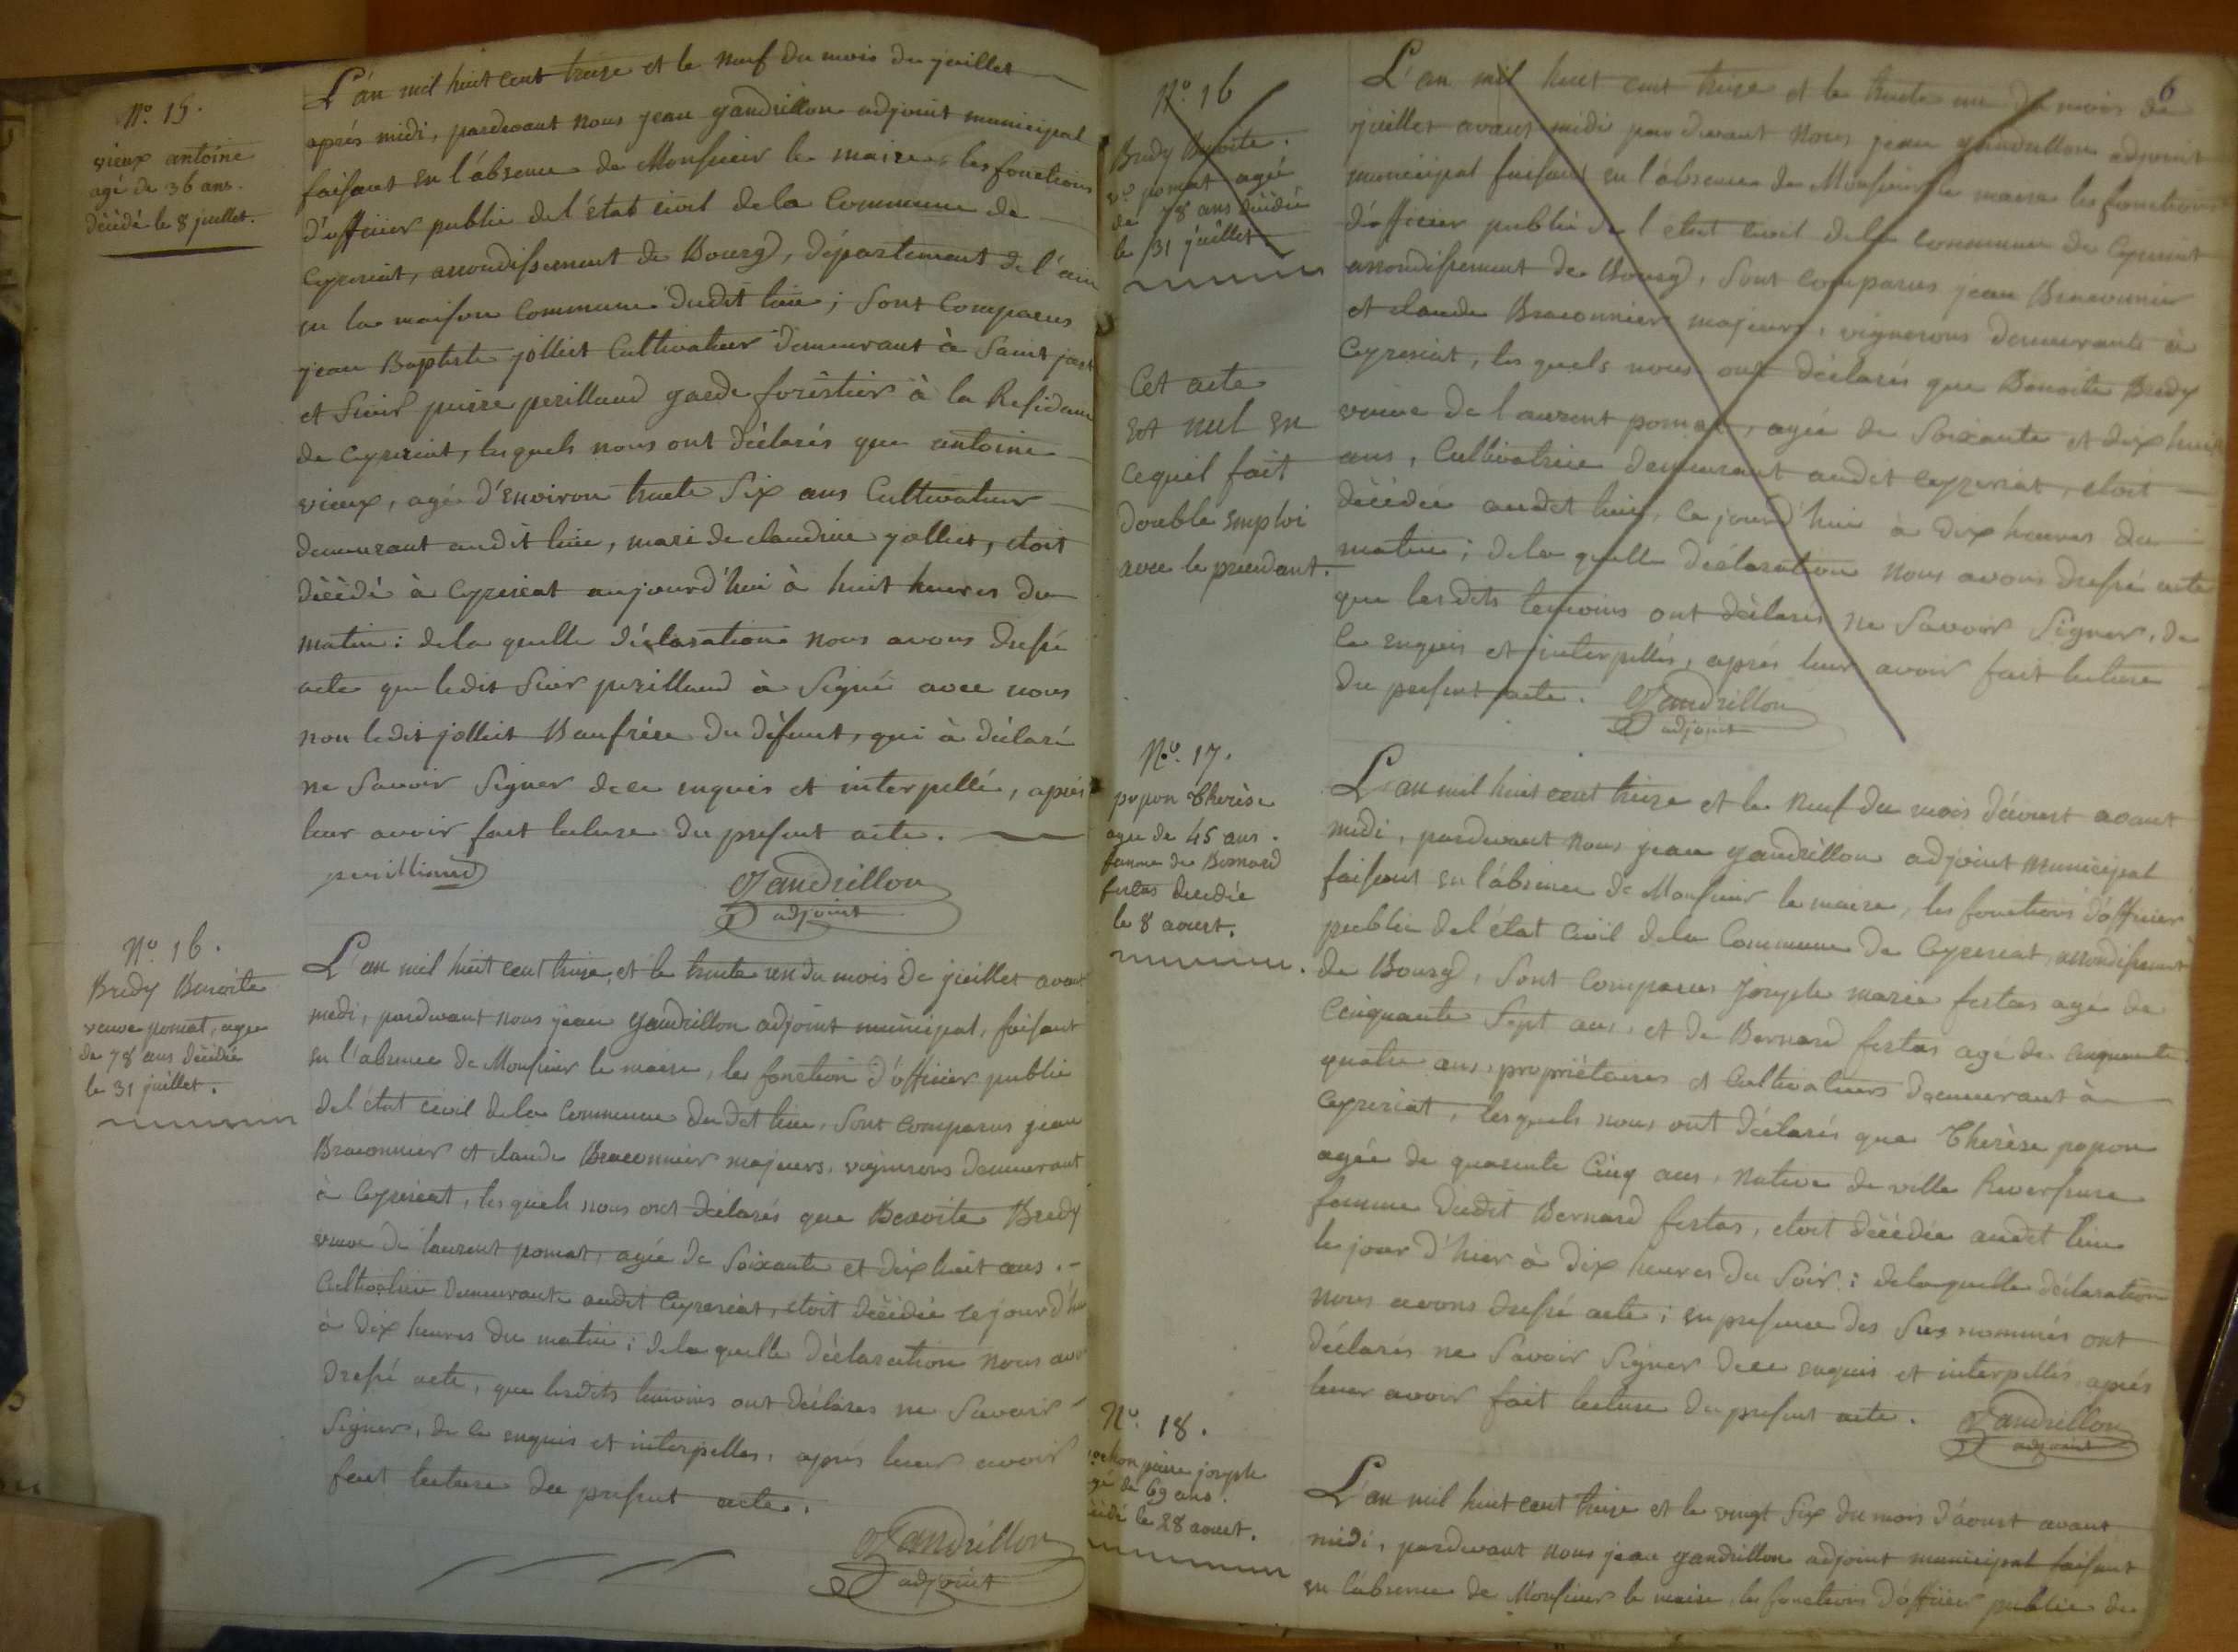 N.º 15.
vieux antoine
agé de 36 ans.
décédé le 8 juillet.
L'án mil huit cent treize et le neuf du mois du juillet
aprés midi, pardevant nous jean gandrillon adjoint municipal
faisant en l'ábsence de Monsieur le maire les fonctions
d'officier public de l'état civil de la Commune de
Ceyzeriat, arrondissement de Bourg, département de l'ain
en la maison Commune dudit lieu; sont Comparus
jean Baptiste jolliet Cultivateur demeurant à Saint just
et sieur pierre perilland garde foréstier à la Residance
de Ceyzeriat, lesquels nous ont déclarés que antoine
vieux, agé d'environ trente six ans Cultivateur
demeurant audit lieu, mari de claudine jolliet, étoit
décédé à Ceyzeriat aujourd'hui à huit heures du
matin: de la quelle déclaration nous avons dressé
acte que ledit sieur perilland à signé avec nous
non ledit jolliet Baufrére du défunt, qui à déclaré
ne savoir signer de ce enquis et interpellé, aprés
leur avoir fait lecture du present acte.
perilland
Gandrillon
adjoint
N.º 16.
Bredy Benoite
veuve pomat, agée
de 78 ans décédée
le 31 juillet.
L'an mil huit cent treize, et le trente un du mois de juillet avant
midi, pardevant nous jean gandrillon adjoint municipal, faisant
en l'absence de Monsieur le maire, les fonction d'officier public
del'état civil dela Commune dudit lieu, sont comparus jean
Braconnier et claude Braconnier majeurs, vignerons demeurant
à Ceyzeriat, les quels nous ont déclarés que Benoite Bredy
veuve de laurent pomat, agée de soixante et dix huit ans.
Cultivatrice demeurante audit Ceyzeriat, étoit décédée ce jourd'hui
à dix heures du matin; dela quelle déclaration nous avons
dressé acte, que lesdits temoins ont déclarés ne savoir
signer, de ce enquis et interpellés, aprés leur avoir
fait lecture du présent acte.
Gandrillon
adjoint
6
N.º 16
Bredy Benoite.
v.e pomat agée
de 78 ans décédée
le 31 juillet.
Cet acte
est nul en
cequil fait
double emploi
avec le precedant.
L'an mil huit cent treize et le trente un du mois de
juillet avant midi par devant nous jean gandrillon adjoint
municipal faisant en l'ábsence de Monsieur le maire les fonctions
d'officier public de l'état civil dela commune de Ceyzeriat
arrondissement de Bourg, sont comparus jean Braconnier
et claude Braconnier majeurs, vignerons demeurants à
Ceyzeriat, les quels nous ont déclarés que Benoite Bredy
veuve de laurent pomat, agée de soixante et dix huit
ans, Cultivatrice demeurant audit Ceyzeriat, étoit
décédée audit lieu, ce jourd'hui à dix heures du
matin; dela quelle déclaration nous avons dressé acte
que lesdits temoins ont déclarés ne savoir signer, de
ce enquis et interpellés, aprés leur avoir fait lecture
du present acte. Gandrillon
adjoint
N.º 17.
popon Thérèse
agée de 45 ans.
femme de Bernard
festas décédée
le 8 aoust.
L'an mil huit cent treize et le neuf du mois d'aoust avant
midi, pardevant nous jean gandrillon adjoint municipal
faisant en l'absence de Monsieur le maire, les fonctions d'officier
public del'état civil dela Commune de Ceyzeriat, arrondissement
de Bourg, sont Comparus joseph marie festas agé de
Cinquante sept ans, et de Bernard festas agé de Cinquante
quatre ans, propriétaires et Cultivateurs demeurant à
Ceyzeriat, lesquels nous ont déclarés que Thérèse popon
agée de quarente cinq ans, native de ville Reversure
femme dudit Bernard festas, étoit décédée audit lieu
le jour d'hier à dix heures du soir: delaquelle déclaration
nous avons dressé acte; en presence des sus nommés ont
déclarés ne savoir signer de ce enquis et interpellés, aprés
leur avoir fait lecture du present acte. Gandrillon
adjoint
N.º 18.
pierre joseph
agé de 69 ans.
décédé le 28 aoust.
L'an mil huit cent treize et le vingt six du mois d'aoust avant
midi, pardevant nous jean gandrillon adjoint municipal faisant
en l'absence de Monsieur le maire, les fonctions d'officier public de